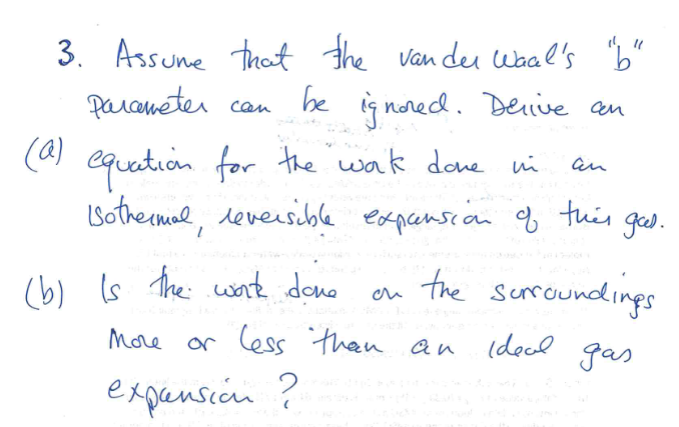 3. Assume that the van der Waal's "b"
parameter can be ignored. Derive an
(a) equation for the work done in an
isothermal, reversible expansion of this gas.
(b) Is the work done on the surroundings
more or less than an ideal gas
expansion?